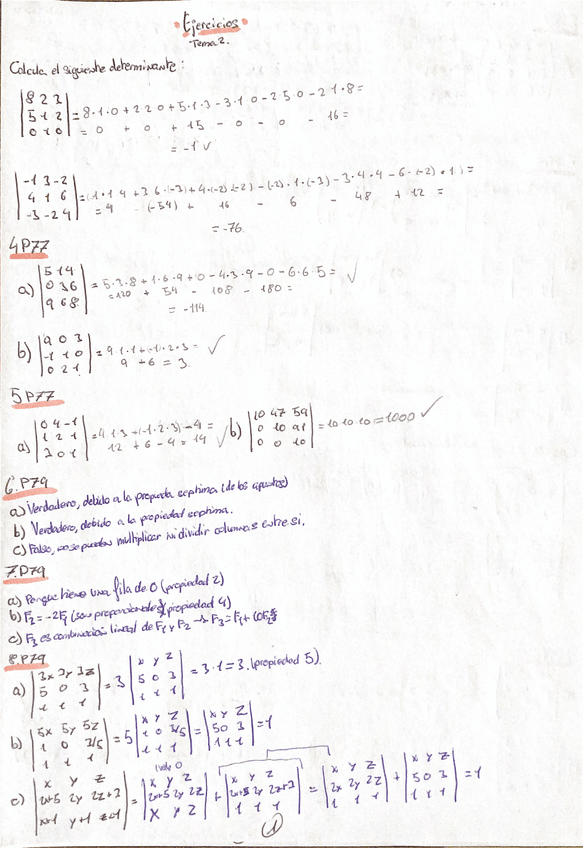 Ejercicios
Tema 2.
Calcula el siguiente determinante:
|8 2 3|
|5 1 2| = 8·1·0 + 2 2 0 + 5·1·3 - 3·1 0 - 2 5 0 - 2 1·8 =
|0 1 0| = 0 + 0 + 15 - 0 - 0 - 16 =
= -1 ✓
|-1 3 -2|
|4 1 6| = (-1·1 4 + 3 6·(-3) + 4·(-2)·(-2) - (-2)·1·(-3) - 3·4·4 - 6·(-2)·1) =
|-3 -2 4| = 4 - (-54) + 16 - 6 - 48 + 12 =
= -76.
4P77
a) |5 1 4|
|0 3 6| = 5·3·8 + 1·6·9 + 0 - 4·3·9 - 0 - 6·6·5 = ✓
|9 6 8| = 120 + 54 - 108 - 180 =
= -114
b) |9 0 3|
|-1 1 0| = 9·1·1 + (-1)·2·3 = ✓
|0 2 1| 9 + 6 = 3.
5P77
a) |0 4 -1|
|1 2 1| = 4·1·3 + (-1·2·3) - 4 =
|3 0 1| 12 + 6 - 4 = 14 ✓
b) |10 47 59|
|0 10 91| = 10 10 10 = 1000 ✓
|0 0 10|
6.P79
a) Verdadero, debido a la propiedad septima (de los apuntes)
b) Verdadero, debido a la propiedad septima.
c) Falso, no se pueden multiplicar ni dividir columnas entre si.
7.P79
a) Porque tiene una fila de 0 (propiedad 2)
b) F2 = -2F1 (son proporcionales) propiedad 4)
c) F3 es combinación lineal de F1 y F2 → F3 = F1 + 10F2
8.P79
a) |3x 3y 3z|
|5 0 3| = 3 |x y z|
|1 1 1| |5 0 3| = 3·1 = 3. (propiedad 5).
|1 1 1|
b) |5x 5y 5z|
|1 0 3/5| = 5 |x y z|
|1 1 1| |1 0 3/5| = |x y z|
|1 1 1| |5 0 3| = 1
|1 1 1|
vale 0
c) |x y z|
|2x+5 2y 2z+3| = |x y z|
|x+1 y+1 z+1| |2x+5 2y 2z| + |x y z|
|x y z| |2x+5 2y 2z+3| = |x y z|
|1 1 1| |2x 2y 2z| + |x y z|
|1 1 1| |5 0 3| = 1
|1 1 1|
1